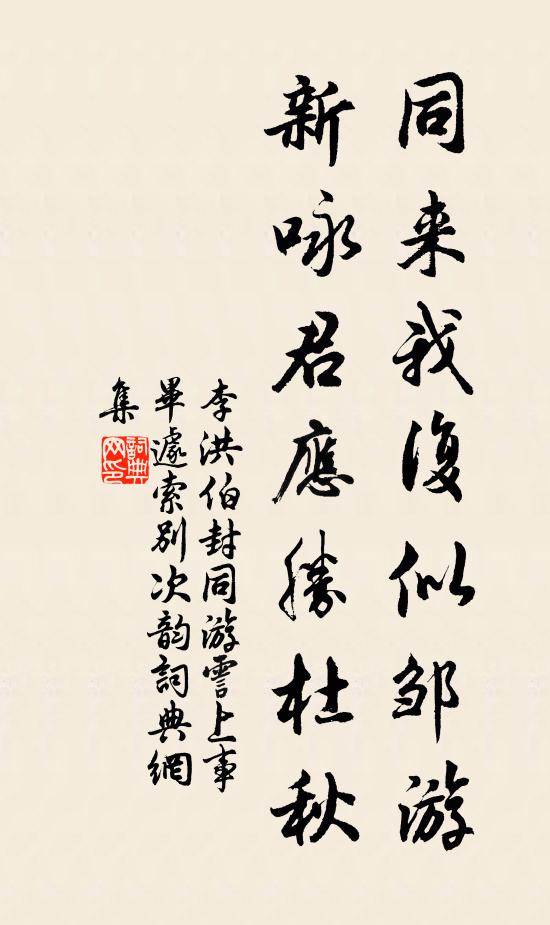 同来我復似邹游
新咏君應勝杜秋
李洪伯封同游霅上事
畢遽索别次韵詞典網
集
詞典
网印